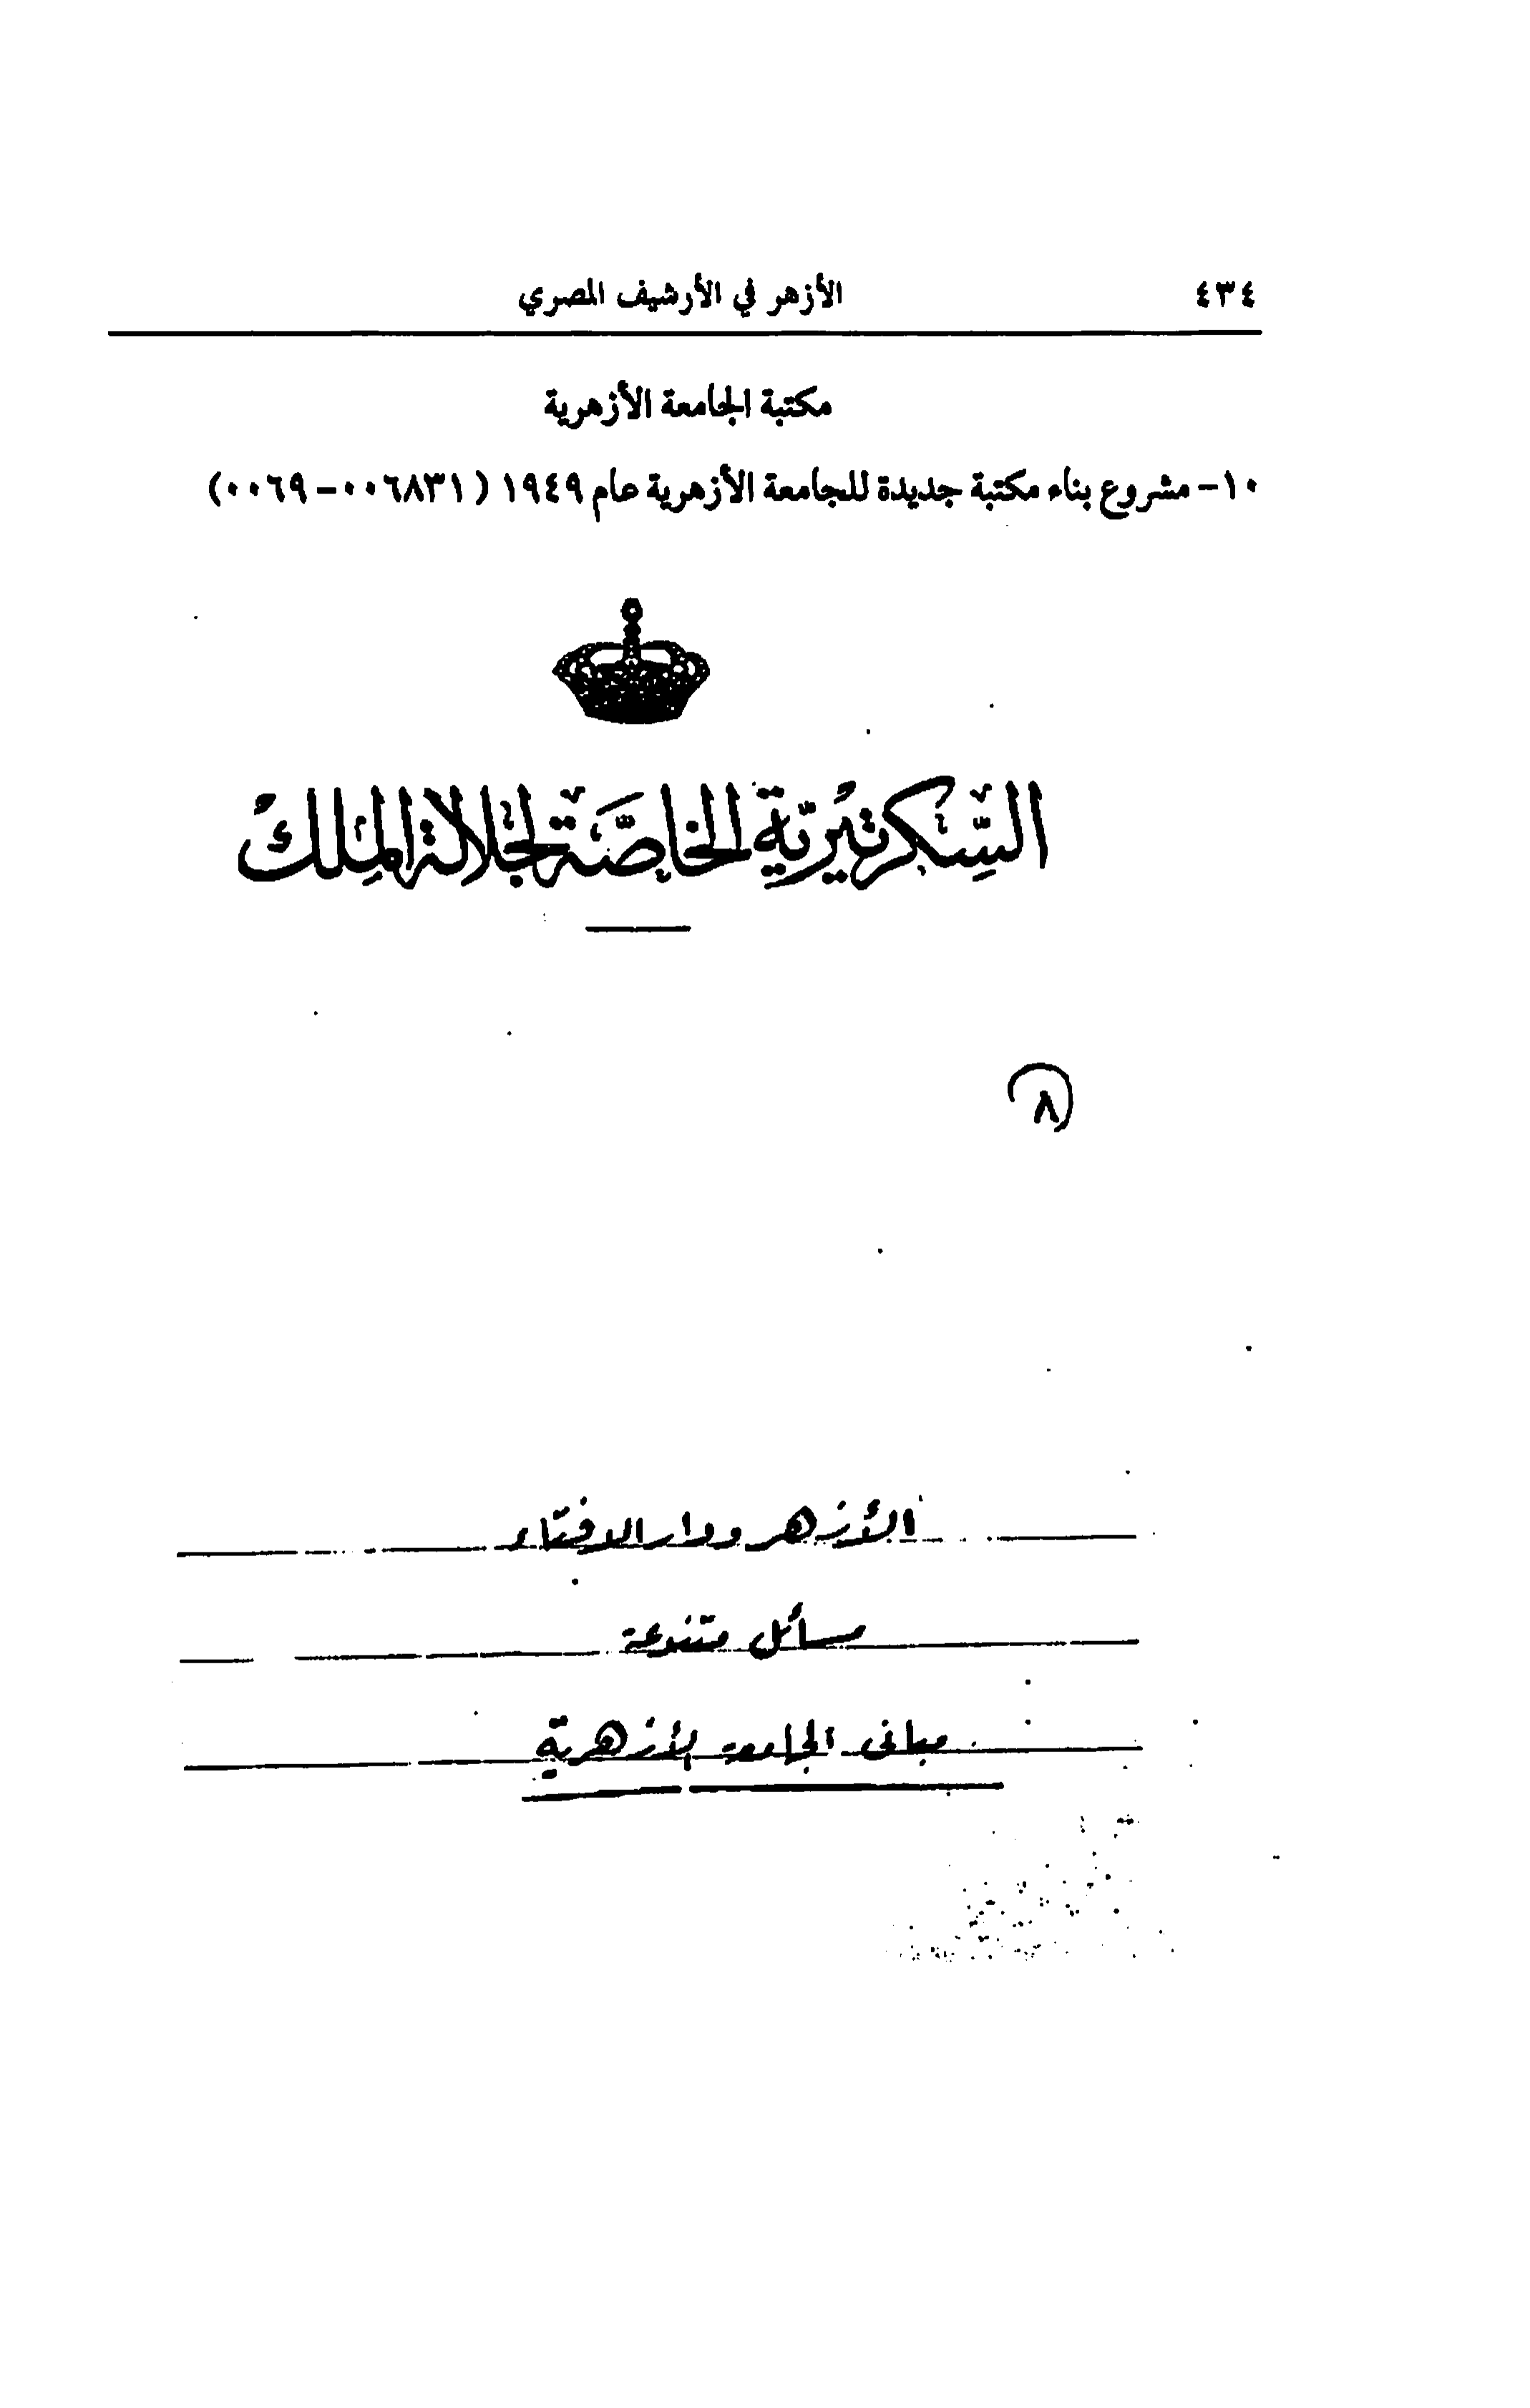 ٤٣٤ الأزهر في الأرشيف المصري
مكتبة الجامعة الأزهرية
١٠- مشروع بناء مكتبة جديدة للجامعة الأزهرية عام ١٩٤٩ (٠٠٦٨٣١-٠٠٦٩)
السِّكرتيُريّة الخاصَّة لجَلالة المِلكُ
٨
الأزهر ودار الافتاء
مسائل متنوعة
مبانى الجامعة الأزهرية